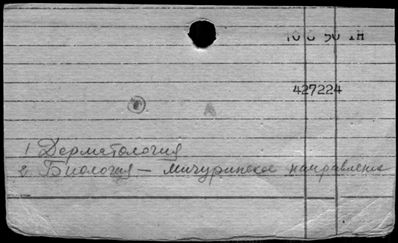 10 8 50 IH
427224
1 Дерматология
2. Биология — мичуринское направление